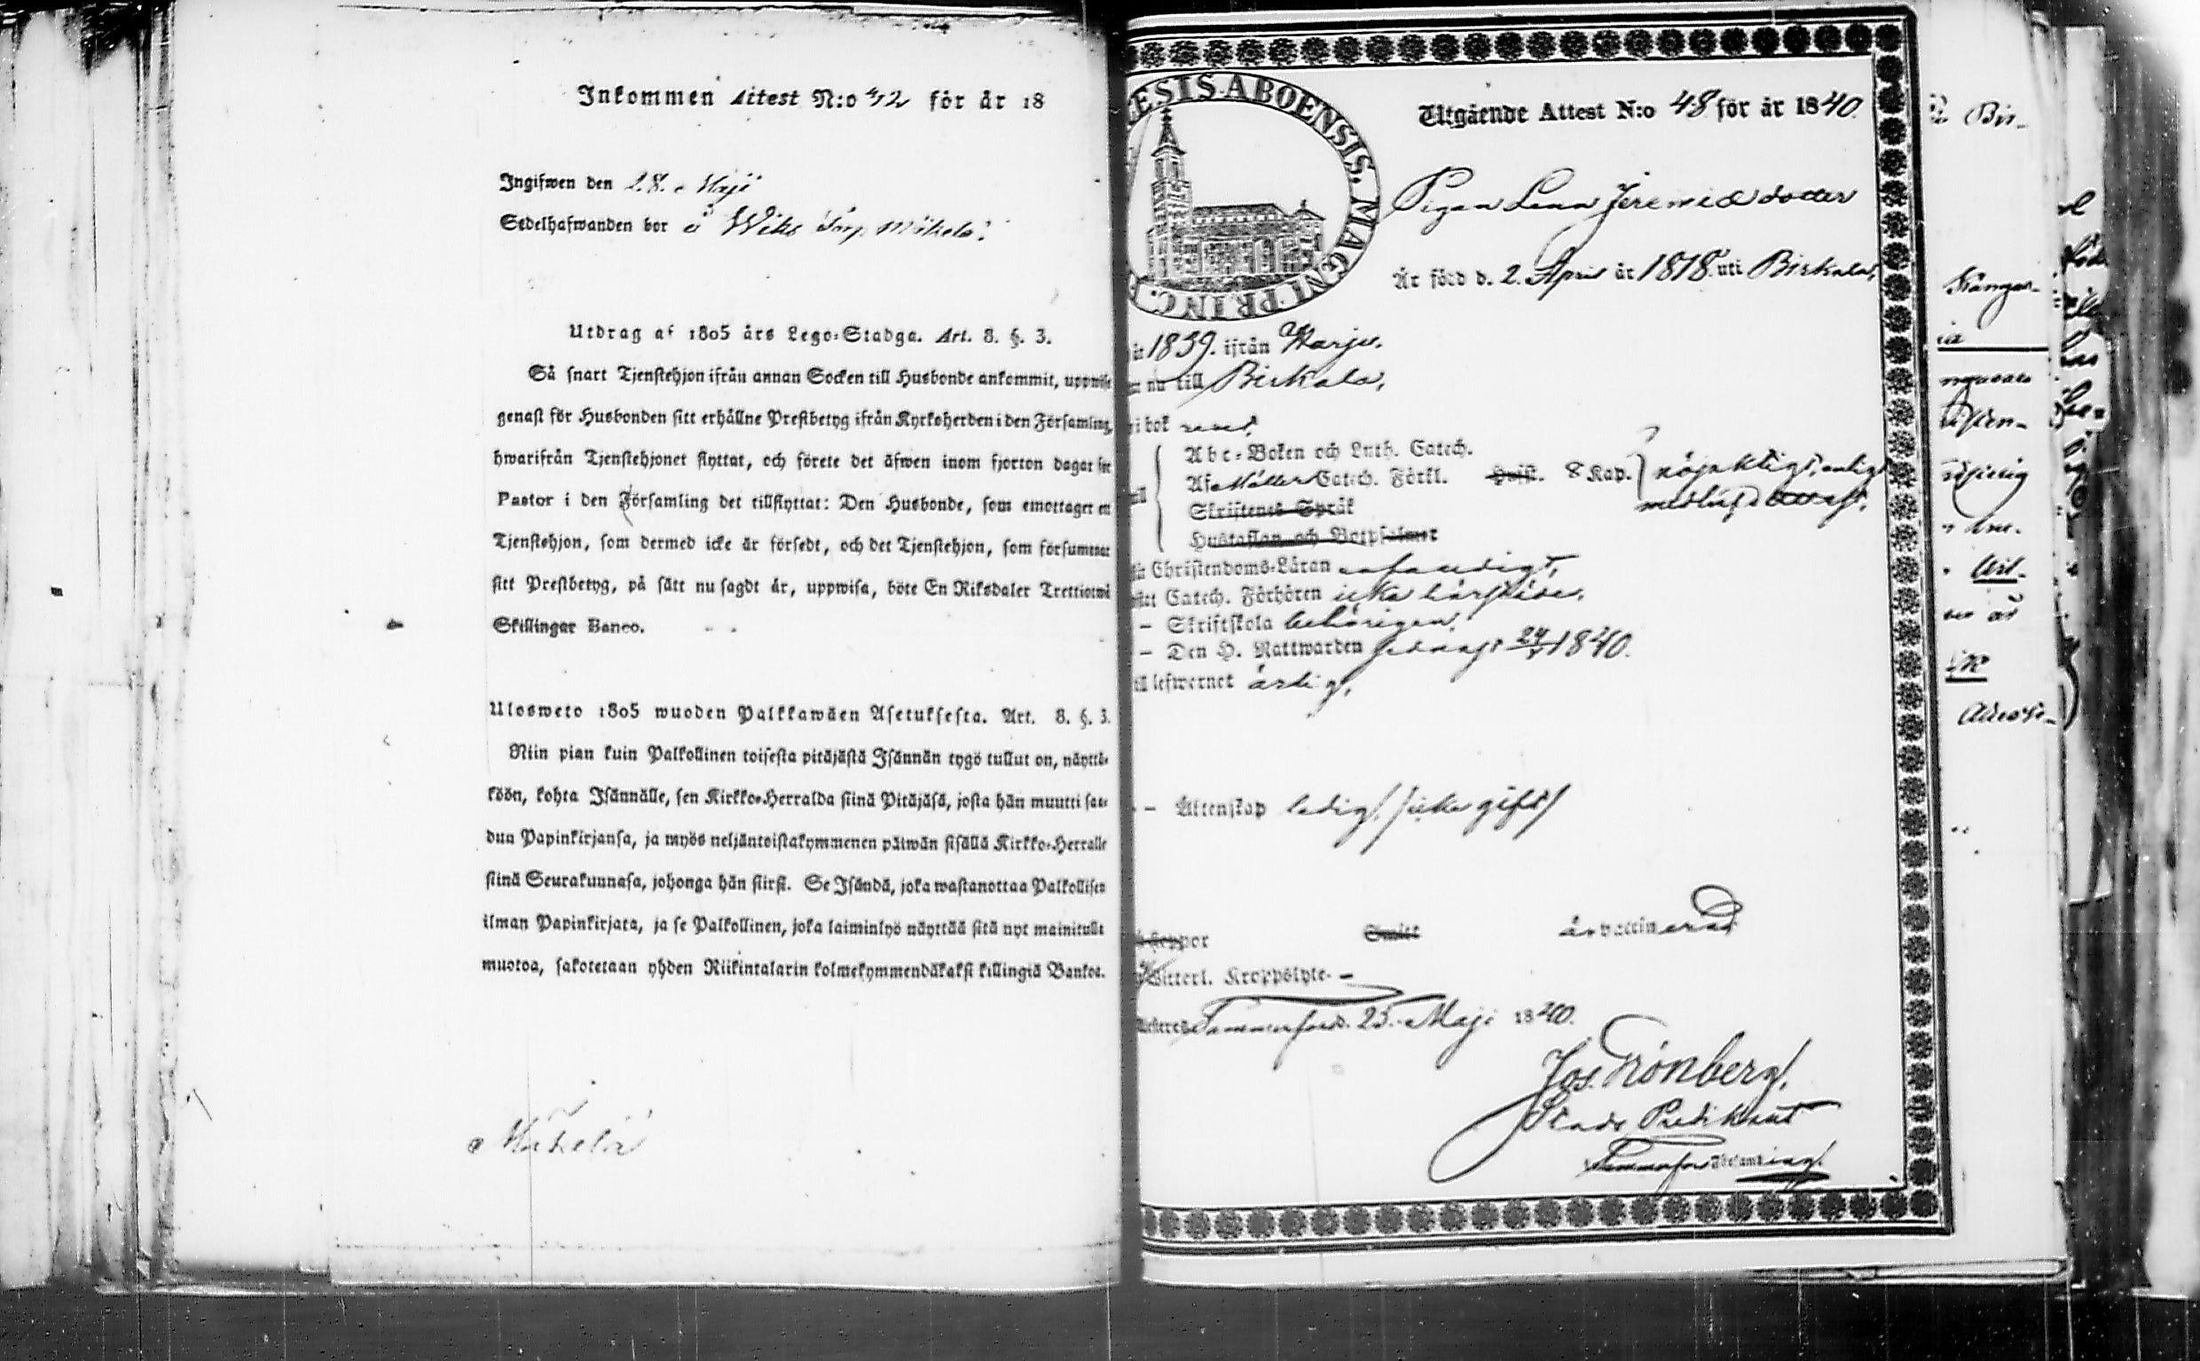 Inkommen Attest N:o 42 för år 18
Ingifwen den 28. Maji
Sedelhafwanden bor å Wiks Torp Mäkelä.
Utdrag af 1805 års Lego-Stadga. Art. 8. §. 3.
Så snart Tjenstehjon ifrån annan Socken till Husbonde ankommit, uppwise
genast för Husbonden sitt erhållne Prestbetyg ifrån Kyrkoherden i den Församling,
hwarifrån Tjenstehjonet flyttat, och förete det äfwen inom fjorton dagar för
Pastor i den Församling det tillflyttat: Den Husbonde, som emottager en
Tjenstehjon, som dermed icke är försedt, och det Tjenstehjon, som försummar
sitt Prestbetyg, på sätt nu sagdt är, uppwisa, böte En Riksdaler Trettiotwå
Skillingar Banco.
Ulosweto 1805 wuoden Palkkawäen Asetuksesta. Art. 8. §. 3.
Niin pian kuin Palkollinen toisesta pitäjästä Isännän tygö tullut on, näyttä-
köön, kohta Isännälle, sen Kirkko-Herralda siinä Pitäjäsä, josta hän muutti saa-
dun Papinkirjansa, ja myös neljäntoistakymmenen päiwän sisällä Kirkko-Herralle
siinä Seurakunnasa, johonga hän siirsi. Se Isändä, joka wastanottaa Palkollisen
ilman Papinkirjata, ja se Palkollinen, joka laiminlyö näyttää sitä nyt mainitulla
muotoa, sakotetaan yhden Riikintalarin kolmekymmendäkaksi killingiä Bankos.
Mäkelä
ESIS ABOENSIS. MAGNI PRINC. F
Utgående Attest N:o 48 för år 1840.
Pigan Lena Jeremiædotter
Är född d. 2. April år 1818. uti Birkala,
år 1839. ifrån Harju.
nu till Birkala,
i bok
Abc-Boken och Luth. Catech.
Af Möllers Catech. Förkl. Hust. 8 Kap. nöjaktigt, enligt
Skriftenes Språk
Hustaflan och Botpsalmer
Christendoms-Läran
Catech. Förhören icke
– Skriftskola behörigen.
– Den H. Nattwarden sednast 24/5 1840.
till lefwernet ärlig,
– Äktenskap ledig /:icke gift:/
koppor Smitt är vaccinerad
Witterl. Kroppslyte. –
Tammerfors d. 25. Maji 1840.
Jos. Grönberg.
Stads Predikant
Tammerfors Församling.
Bir-